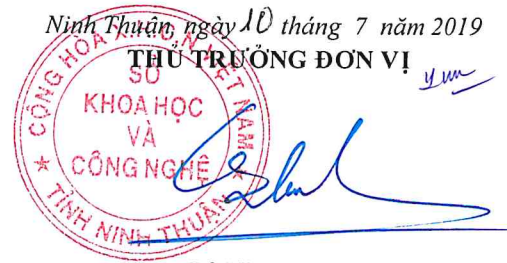 Ninh Thuận, ngày 10 tháng 7 năm 2019
THỦ TRƯỞNG ĐƠN VỊ
CỘNG HÒA VIỆT NAM
SỞ
KHOA HỌC
VÀ
CÔNG NGHỆ
TỈNH NINH THUẬN